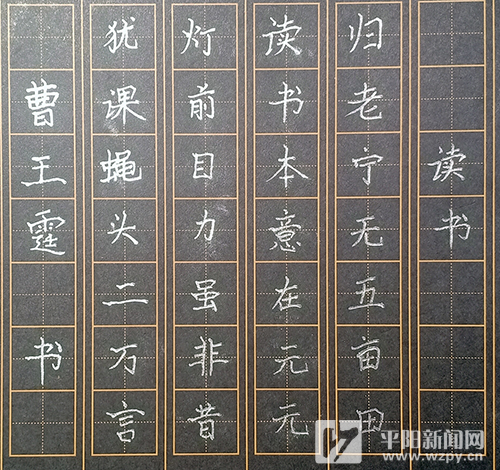 读书
归老宁无五亩田
读书本意在元元
灯前目力虽非昔
犹课蝇头二万言
曹王霆书
平阳新闻网
www.wzpy.cn